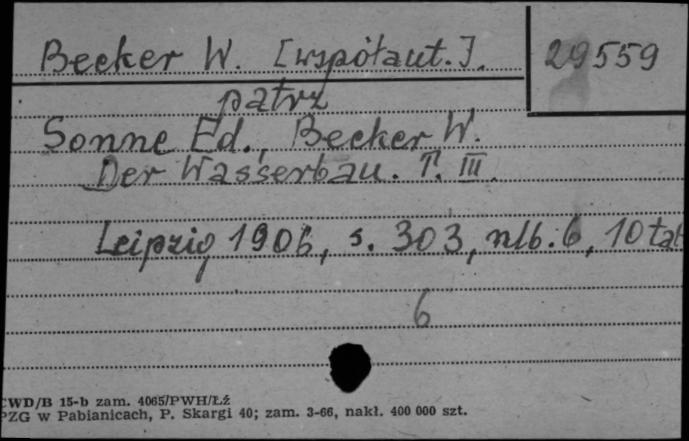 Becker W. [współaut.].
29559
patrz
Sonne Ed., Becker W.
Der Wasserbau. T. III.
Leipzig 1906, s. 303, nlb. 6, 10 tab
6
CWD/B 15-b zam. 4065/PWH/Łź
PZG w Pabianicach, P. Skargi 40; zam. 3-66, nakł. 400 000 szt.